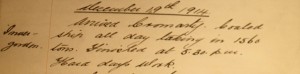 December 19th 1914.
Inver-
gordon.
Arrived Cromarty. Coaled
ship all day taking in 1360
tons. Finished at 5.30 p.m.
Hard days work.